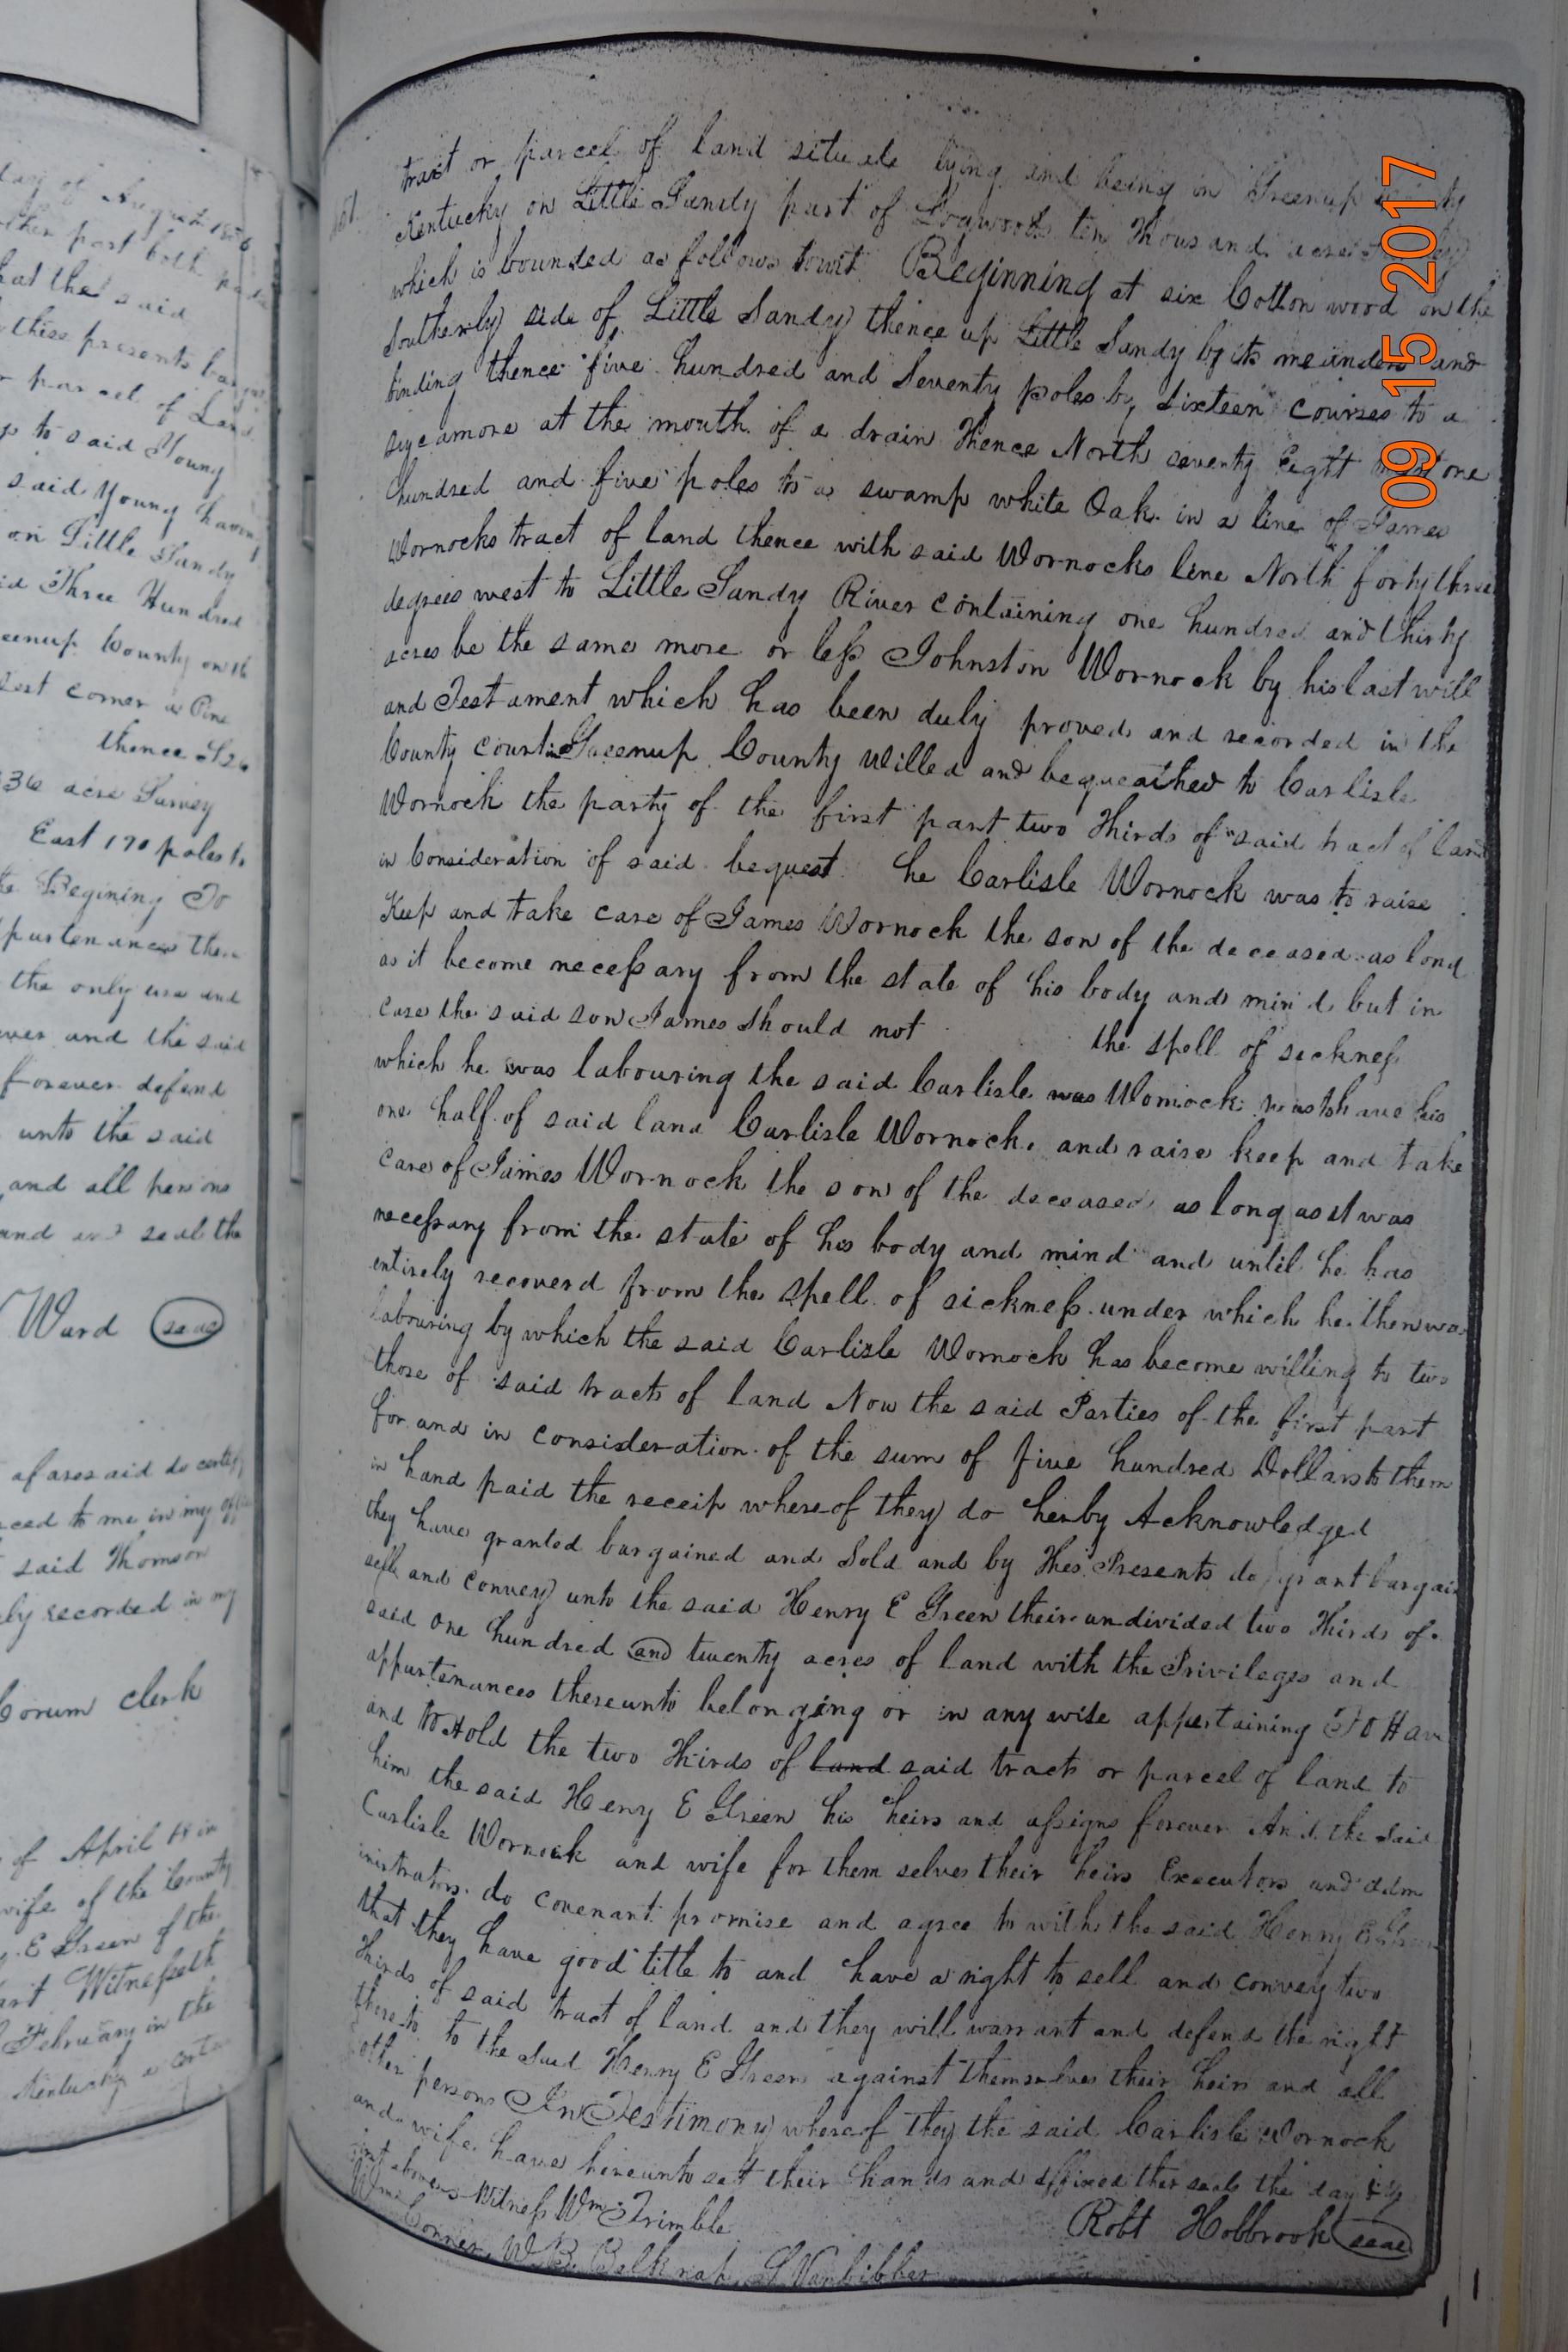 day of August 18
other part both
hat the said
these presents
parcel of Land
to said Young
said Young having
on Little Sandy
id Three Hundred
eenup County on th
corner a Pine
thence S 26
36 acre Survey
East 170 poles to
Begining To
purtenances then
the only use and
ever and the said
forever defend
unto the said
and all persons
and seal the
Ward seal
aforesaid do certify
ced to me in my
said Thomson
ly recorded in my
Corum clerk
of April
wife of the County
E Green of the
art Witnesseth
February in the
Kentucky a certa
tract or parcel of land situate lying and being in Greenup
Kentucky on Little Sandy part of ten Thousand acre
which is bounded as follows towit Beginning at six Cotton wood on the
Southerly side of Little Sandy thence up Little Sandy by its meanders and
binding thence five hundred and Seventy poles by Sixteen courses to a
sycamore at the mouth of a drain Thence North seventy Eight one
hundred and five poles to a swamp white Oak in a line of James
Wornocks tract of land thence with said Wornocks line North forty three
degrees west to Little Sandy River containing one hundred and thirty
acres be the same more or less Johnston Wornock by his last will
and Testament which has been duly proved and recorded in the
County court in Greenup County Willed and bequeathed to Carlisle
Wornock the party of the first part two Thirds of said tract of land
in Consideration of said bequest he Carlisle Wornock was to raise
Keep and take care of James Wornock the son of the deceased as long
as it become necessary from the state of his body and mind but in
case the said son James Should not the spell of sickness
which he was labouring the said Carlisle was Wornock was to have his
one half of said land Carlisle Wornock and raise keep and take
care of James Wornock the son of the deceased as long as it was
necessary from the state of his body and mind and until he has
entirely recoverd from the spell of sickness under which he then was
labouring by which the said Carlisle Wornock has become willing to two
those of said tract of land Now the said Parties of the first part
for and in consideration of the sum of five hundred Dollars to them
in hand paid the receip whereof they do herby Acknowledged
they have granted bargained and Sold and by Thes Presents do grant bargain
sell and convey unto the said Henry E Green their undivided two Thirds of
said one hundred and twenty acres of land with the Privileges and
appurtenances thereunto belonging or in any wise appertaining To Hav
and to Hold the two Thirds of land said tract or parcel of land to
him the said Henry E Green his heirs and assigns forever And the said
Carlisle Wornock and wife for them selves their heirs Executors and adm
inistrators do covenant promise and agree to with the said Henry E Green
that they have good title to and have a right to sell and convey two
Thirds of said tract of land and they will warrant and defend the right
there to to the said Henry E Green against themselves their heirs and all
other persons In Testimony whereof they the said Carlisle Wornock
and wife have hereunto set their hands and affixed ther seals the day &
above Witness Wm Trimble
Robt Hobbrook seal
Wm Conner W. B. Belknap S Vanbibber
09 15 2017